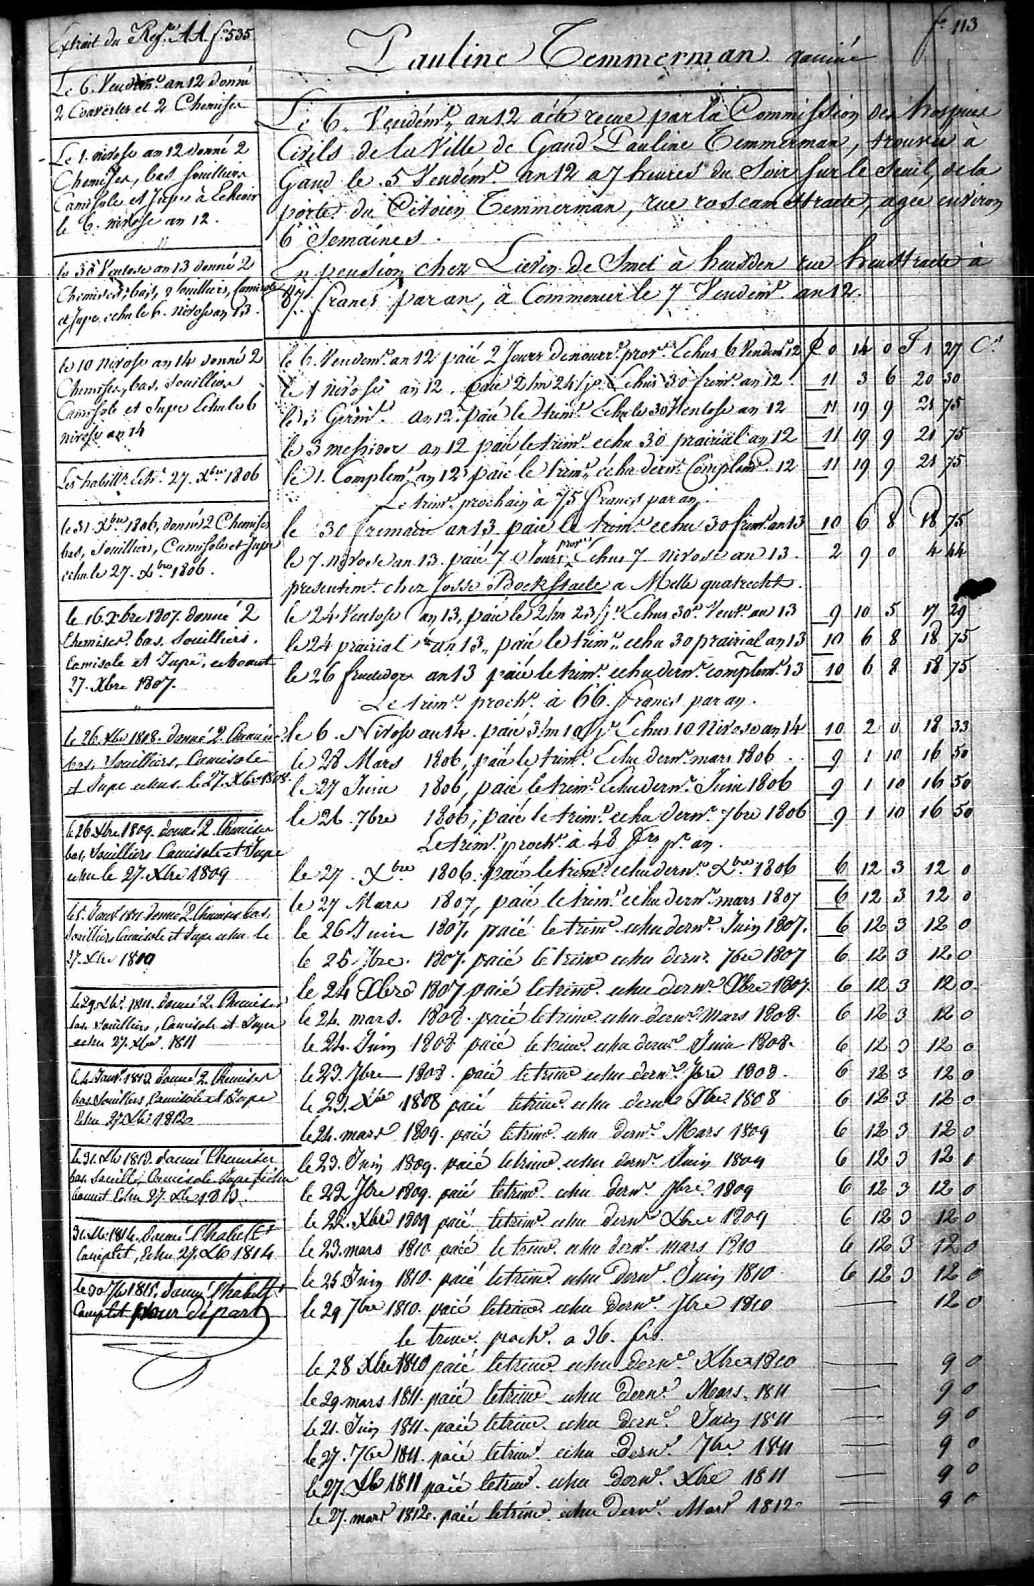 fo 113
Extrait du Regre AA fo 535
Pauline Temmerman vaccinée
Le 6 Vendemre an 12 donné
2 Couvertes et 2 Chemises
Le 1. nivose an 12 donné 2
Chemises, bas, souilliers
Camisole et Jupe à Echeoir
le 6. nivose an 12.
le 30 Ventose an 13 donné 2
Chemises, bas, souilliers, Camisole
et Jupe echu le 6. nivose an 13.
le 10 Nivose an 14 donné 2
Chemises, bas, souilliers
Camisole et Jupe Echu le 6
nivose an 14
Les habillts Echs 27. Xbre 1806
le 31. Xbre 1806, donné 2 Chemises
bas, souilliers, Camisole et Jupe
echu le 27. Xbre 1806.
le 16. Xbre 1807. donné 2
Chemises. bas. souilliers.
Camisole et Jupe,
27. Xbre 1807.
le 26. Xbre 1808. donné 2. Chemises
bas, souilliers, Camisole
et Jupe echus le 27. Xbre 1808.
le 26 Xbre 1809. donné 2. Chemises
bas, souilliers Camisole et Jupe
echu le 27. Xbre 1809
donné 2. Chemises bas,
souilliers Camisole et Jupe echu le
27. Xbre 1810
le 29. Xbre 1811. donné 2. Chemises
bas souilliers, Camisole et Jupe
echu 27. Xbre. 1811
le 4. Janvr 1813. donné 2. Chemises
bas souilliers, Camisole et Jupe
Echu 27 Xbre 1812
le 31. Xbre 1813. donné Chemises
bas. souilliers, Camisole Jupe fichu
bonnet Echu 27. Xbre 1813.
31. Xbre 1814, donné l'habillt
Complet, Echu 27. Xb 1814
le 30 7bre 1815. donné l'habillt
Complet pour départ
Le 6 Vendémre an 12 a été reçue par la Commission des hospices
Civils de la Ville de Gand Pauline Temmerman, trouvée à
Gand le 5 Vendémre an 12 a 7 heures du Soir sur le Seuil de la
porte du Citoien Temmerman, rue roscamstraete, agée environ
6 Semaines.
En pension chez Lievin de Smet à heusden rue heustraete à
87. francs par an, à Commencer le 7 Vendemre an 12.
le 6. Vendemre an 12 paié 2 Jours de nourre provre Echus 6 Vendemre 12 £ 0 14 0 F 1 27 Cs
le 1 nivose an 12. paié 2/m 24/j Echus 30 frimre an 12. 11 3 6 20 30
le 1 Germl. an 12. paié le trimre Echu le 30 Ventose an 12 11 19 9 21 75
le 3 messidor an 12 paié le trimre echu 30 prairial an 12 11 19 9 21 75
le 1. Complemre an 12 paié le trimre echu dernr Complemre 12 11 19 9 21 75
Le trimre prochain à 75 francs par an.
le 30 fremaire an 13 paié le trimre echu 30 frimre an 13 10 6 8 18 75
le 7 nivose an 13. paié 7 Jours provre Echus 7 nivose an 13. 2 9 0 4 44
presentemt chez Josse Bockstaele a Melle quatrecht.
le 24 Ventose an 13, paié le 2/m 23/j Echus 30 Vente an 13 9 10 5 17 29
le 24 prairial an 13, paié le trimre echu 30 prairial an 13 10 6 8 18 75
le 26 fructidor an 13 paié le trimre echu dernr complemre 13 10 6 8 18 75
Le trimre prochr à 66. francs par an.
le 6. Nivose an 14. paié 3/m 10/j Echus 10 Nivose an 14 10 2 0 18 33
le 28 Mars 1806, paié le trimre Echu dernr mars 1806 9 1 10 16 50
le 27 Juin 1806, paié le trimre Echu dernr Juin 1806 9 1 10 16 50
le 26. 7bre 1806, paié le trimre echu dernr 7bre 1806 9 1 10 16 50
Le trimre prochr à 48 frs pr an.
le 27. Xbre 1806. paié le trimre echu dernr Xbre 1806 6 12 3 12 0
le 27 Mars 1807, paié le trimre echu dernr mars 1807 6 12 3 12 0
le 26 Juin 1807. paié le trimre echu dernr Juin 1807. 6 12 3 12 0
le 25 7bre. 1807. paié le trime echu dernr 7bre 1807 6 12 3 12 0
le 24 Xbre 1807 paié le trimre echu dernr Xbre 1807. 6 12 3 12 0
le 24. mars. 1808. paié le trime echu dernr Mars 1808. 6 12 3 12 0
le 24. Juin 1808 paié le trime echu dernr Juin 1808. 6 12 3 12 0
le 23. 7bre 1808. paié le trime echu dernr 7bre 1808. 6 12 3 12 0
le 23. Xbre 1808 paié le trime echu dernr Xbre 1808 6 12 3 12 0
le 24. mars 1809. paié le trime echu dernr Mars 1809 6 12 3 12 0
le 23. Juin 1809. paié le trime echu dernr Juin 1809 6 12 3 12 0
le 22 7bre 1809. paié le trime echu dernr 7bre 1809 6 12 3 12 0
le 22. Xbre 1809 paié le trime echu dernr Xbre 1809 6 12 3 12 0
le 23. mars 1810 paié le trime echu dernr mars 1810 6 12 3 12 0
le 25 Juin 1810. paié le trime echu dernr Juin 1810 6 12 3 12 0
le 29 7bre 1810. paié le trime echu dernr 7bre 1810 — 12 0
le trime. prochr. a 36. frs.
le 28 Xbre 1810 paié le trime echu dernr Xbre 1810 — 9 0
le 29 mars 1811. paié le trime echu dernr Mars. 1811 — 9 0
le 21. Juin 1811. paié le trime echu dernr Juin 1811 — 9 0
le 27. 7bre 1811. paié le trime echu dernr 7bre 1811 — 9 0
le 27. Xb 1811 paié le trime echu dernr Xbre 1811 — 9 0
le 27. mars 1812. paié le trime echu dernr Mars 1812. — 9 0